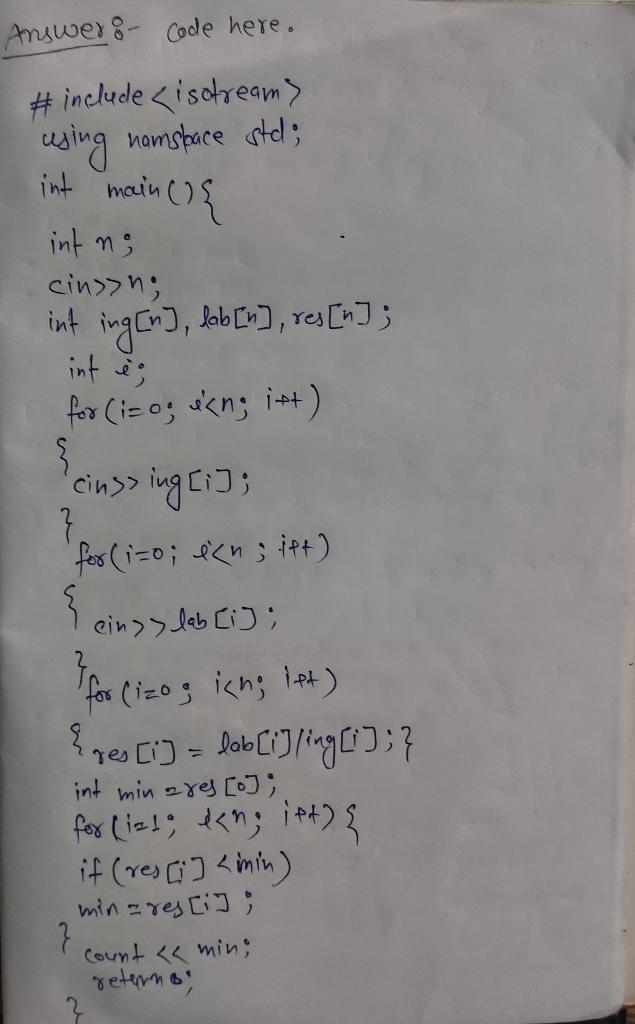 Answer:- Code here.
# include <isotream>
using namspace std;
int main(){
int n;
cin>>n;
int ing[n], lab[n], res[n];
int i;
for(i=0; i<n; i++)
{
cin>> ing[i];
}
for(i=0; i<n; i++)
{ cin>> lab[i];
}
for(i=0; i<n; i++)
{ res[i] = lab[i]/ing[i];}
int min = res[0];
for(i=1; i<n; i++) {
if (res[i] <min)
min = res[i];
}
count << min;
return 0;
}